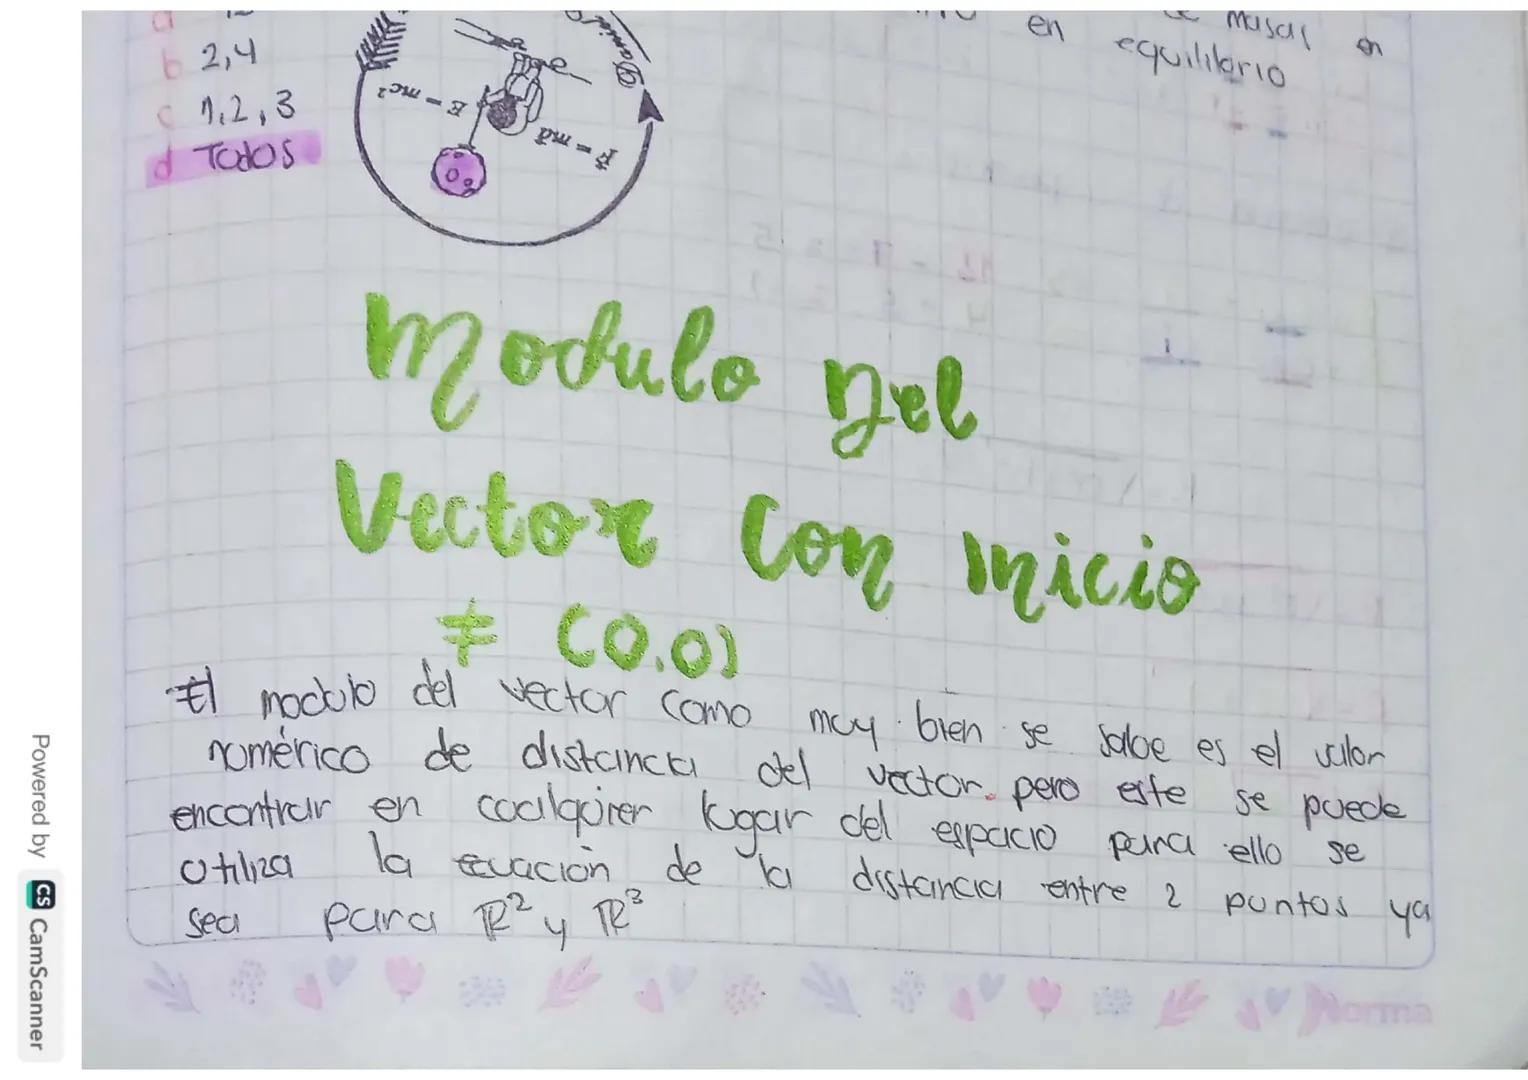 b 2,4
c 1,2,3
d Todos
E = mc²
F = ma
masas en
en equilibrio
Modulo Del
Vector Con Inicio
≠ (0,0)
El modulo del vector como muy bien se sabe es el valor
numérico de distancia del vector. pero este se puede
encontrar en cualquier lugar del espacio para ello se
utiliza la ecuación de la distancia entre 2 puntos ya
sea para ℝ² y ℝ³
Norma
Powered by CS CamScanner